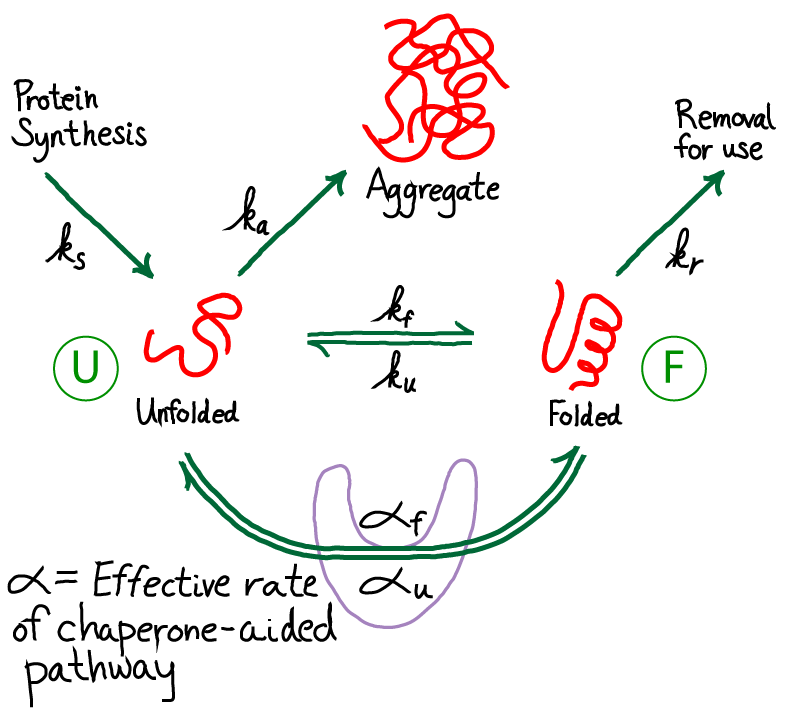 Protein
Synthesis
kₛ
kₐ
Aggregate
Removal
for use
kᵣ
k_f
kᵤ
U
Unfolded
Folded
F
α_f
αᵤ
α = Effective rate
of chaperone-aided
pathway